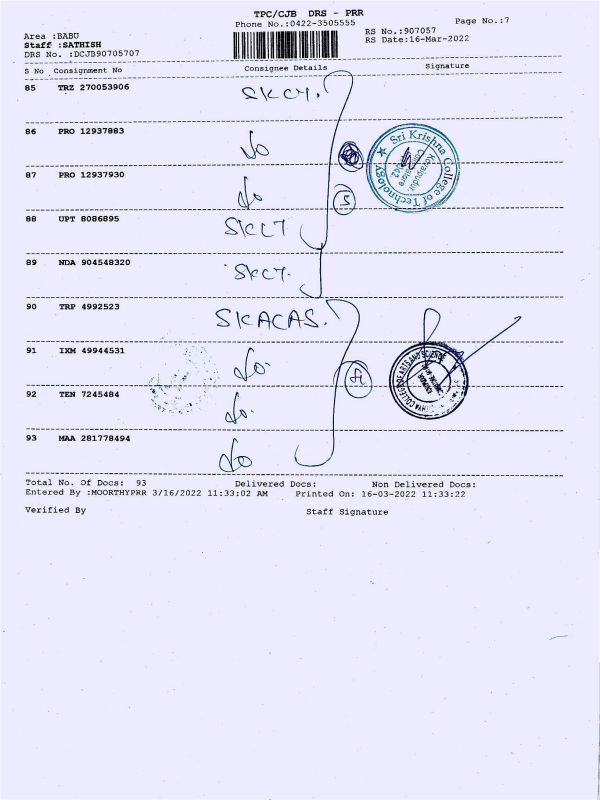 TPC/CJB DRS - PRR
Phone No.:0422-3505555
Page No.:7
Area :BABU
RS No.:907057
Staff :SATHISH
RS Date:16-Mar-2022
DRS No. :DCJB90705707
S No Consignment No Consignee Details Signature
85 TRZ 270053906 SKCT.
86 PRO 12937883 Do
87 PRO 12937930 Do
5
88 UPT 8086895 SKCT
89 NDA 904548320 SKCT.
Sri Krishna College of Technology
Kovaipudur
Coimbatore
90 TRP 4992523 SKACAS.
91 IXM 49944531 Do.
92 TEN 7245484 Do.
93 MAA 281778494 Do
COLLEGE OF ARTS AND SCIENCE
Total No. Of Docs: 93 Delivered Docs: Non Delivered Docs:
Entered By :MOORTHYPRR 3/16/2022 11:33:02 AM Printed On: 16-03-2022 11:33:22
Verified By Staff Signature